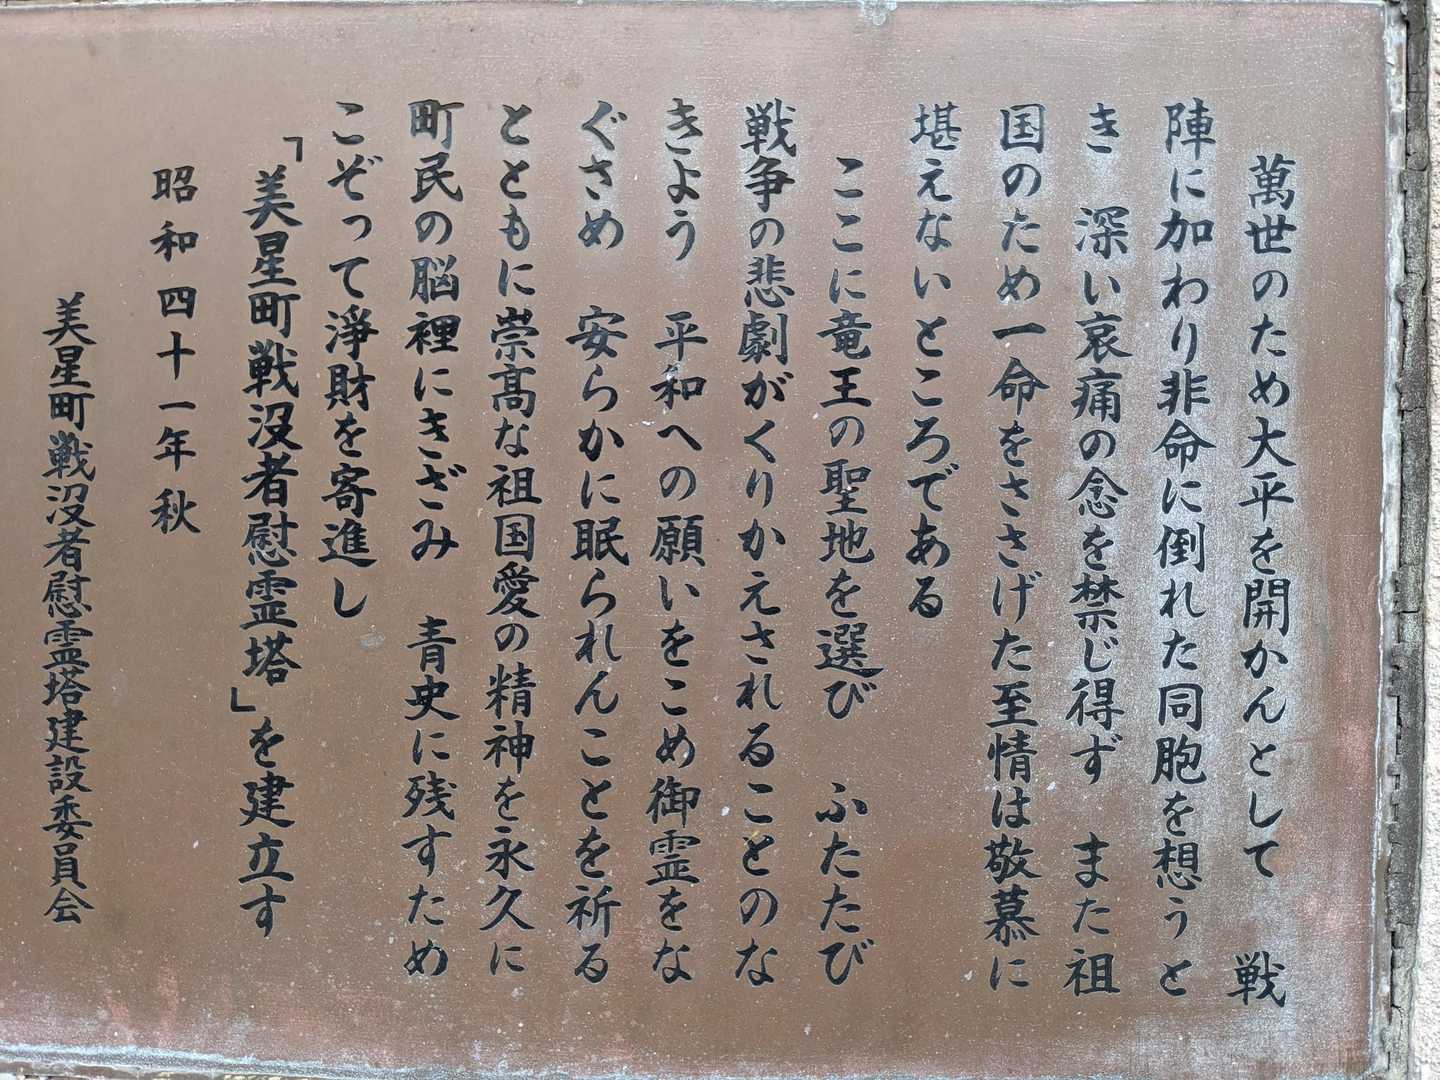 萬世のため大平を開かんとして　戦
陣に加わり非命に倒れた同胞を想うと
き　深い哀痛の念を禁じ得ず　また祖
国のため一命をささげた至情は敬慕に
堪えないところである
ここに竜王の聖地を選び　ふたたび
戦争の悲劇がくりかえされることのな
きよう　平和への願いをこめ御霊をな
ぐさめ　安らかに眠られんことを祈る
とともに崇高な祖国愛の精神を永久に
町民の脳裡にきざみ　青史に残すため
こぞって淨財を寄進し
「美星町戦没者慰霊塔」を建立す
昭和四十一年秋
美星町戦没者慰霊塔建設委員会